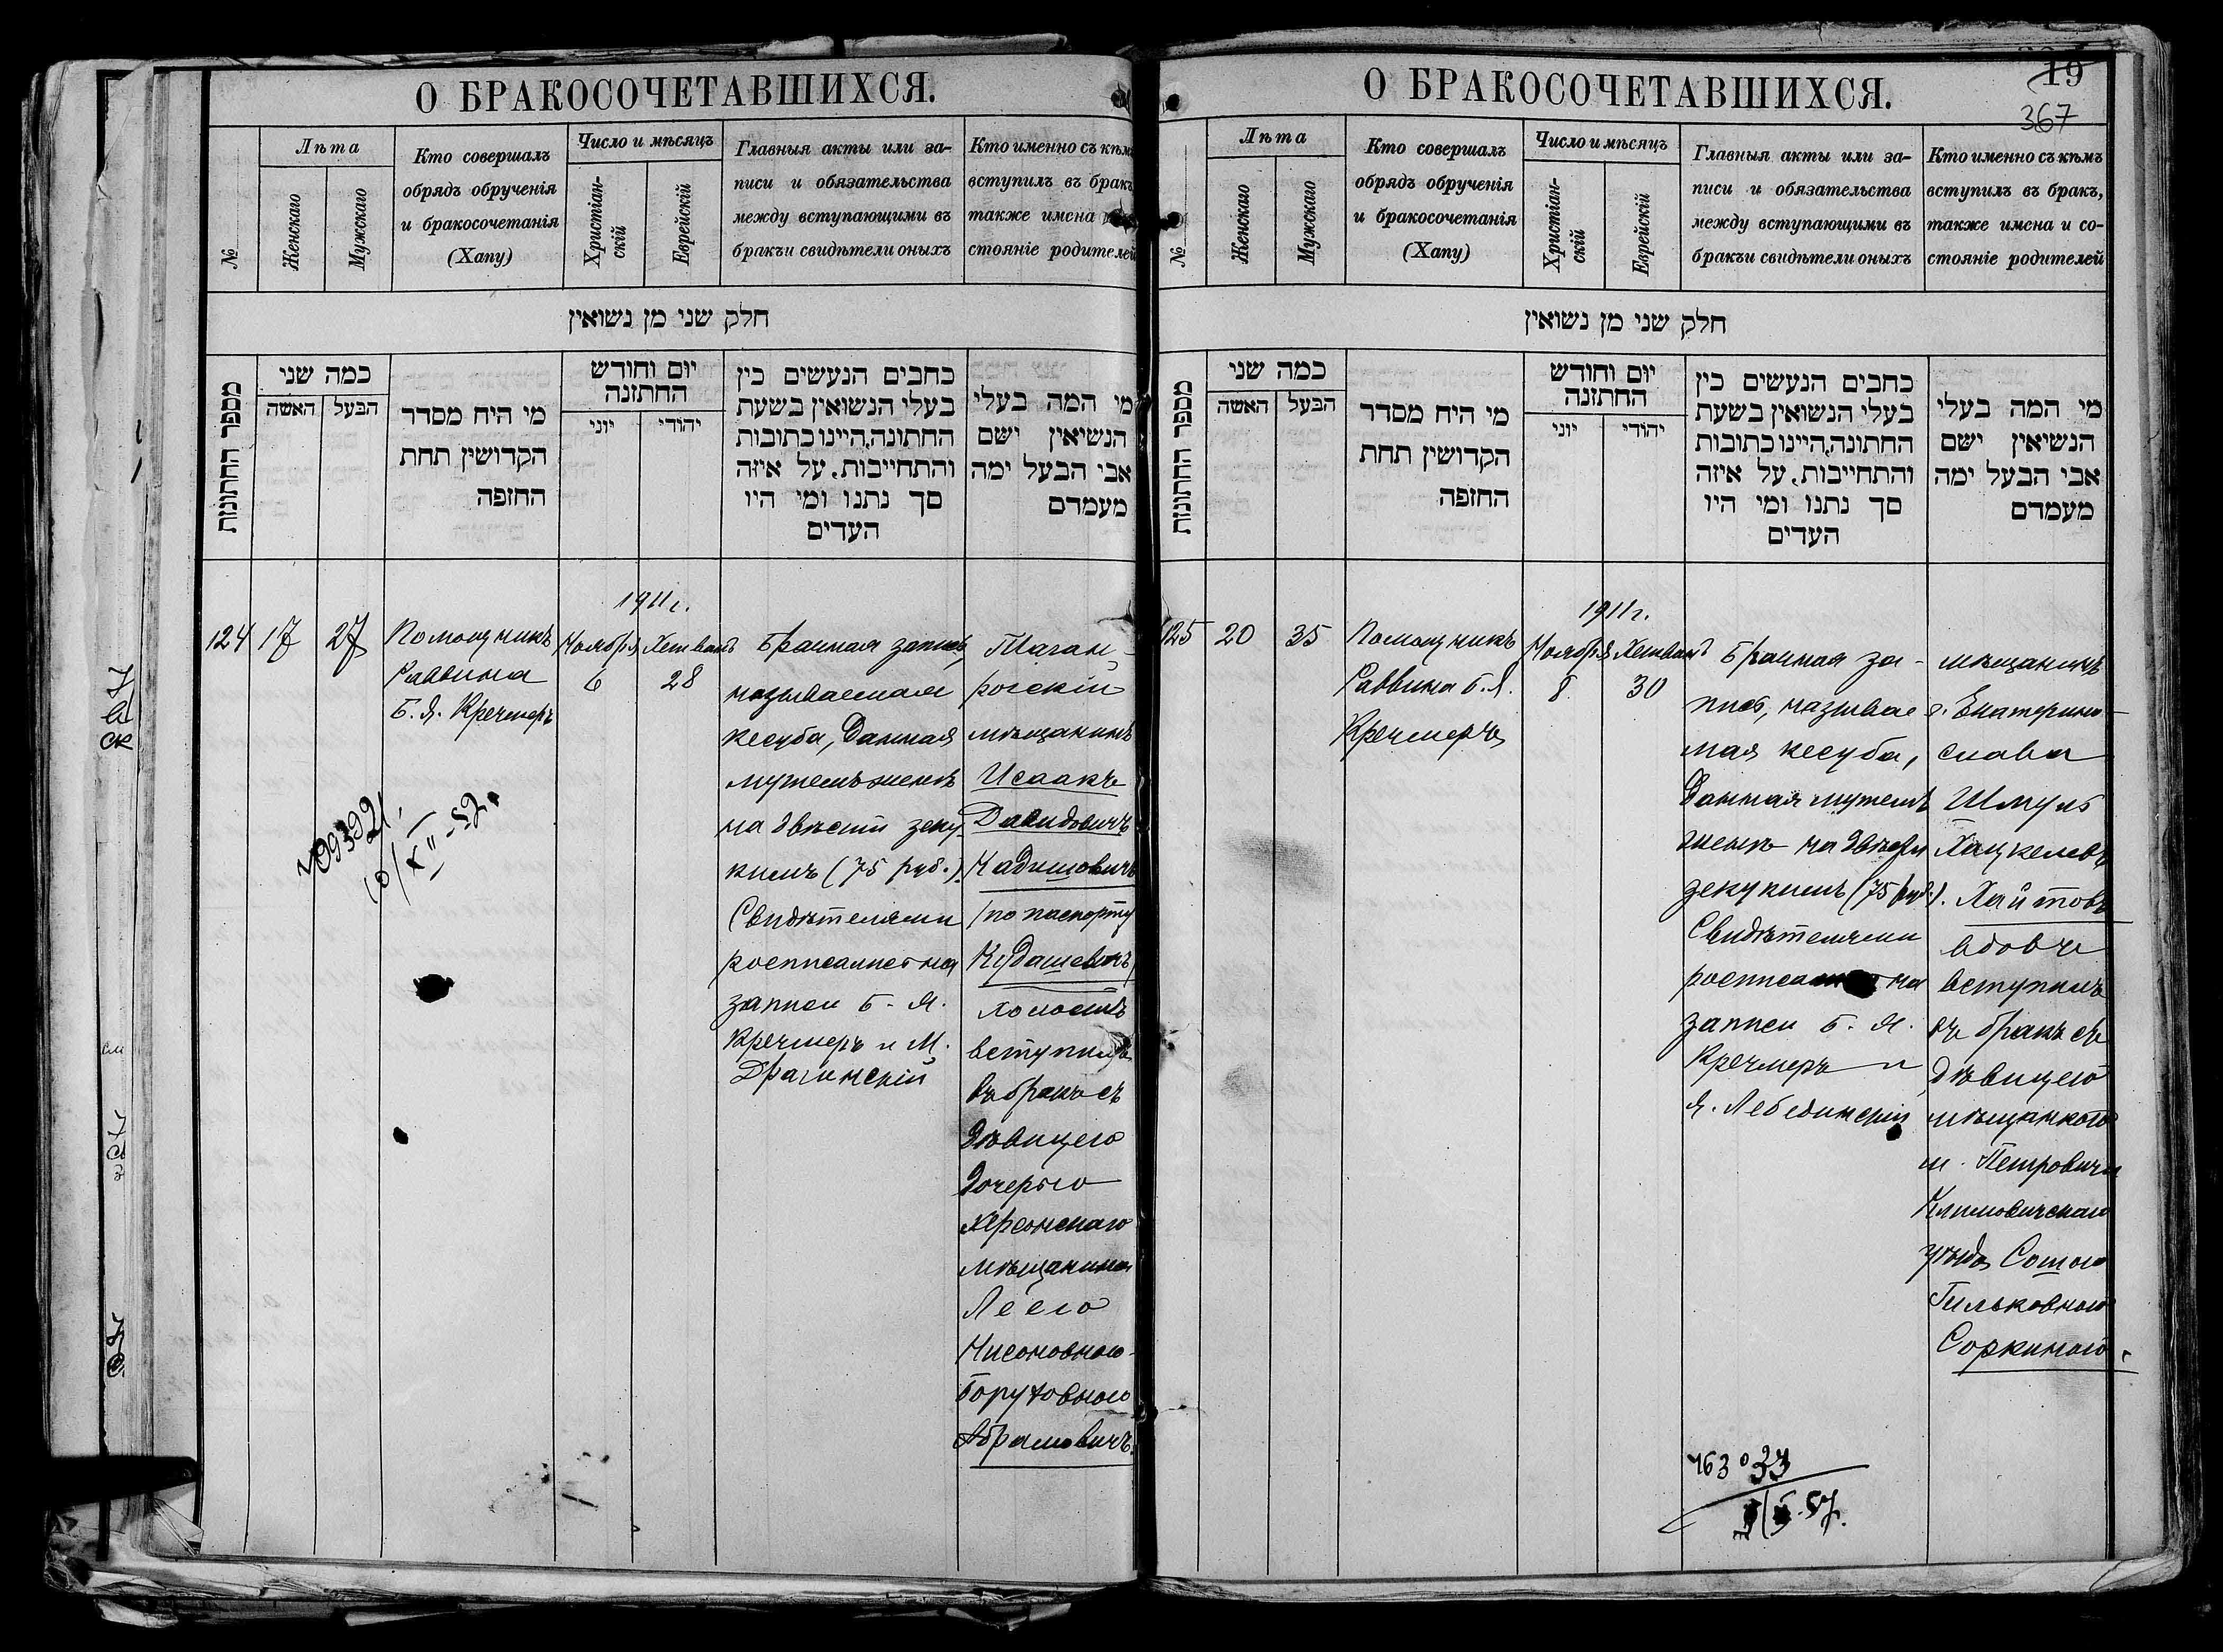 О БРАКОСОЧЕТАВШИХСЯ.
№
Лѣта
Женскаго
Мужскаго
Кто совершалъ
обрядъ обрученія
и бракосочетанія
(Хапу)
Число и мѣсяцъ
Христіан-
скій
Еврейскій
Главныя акты или за-
писи и обязательства
между вступающими въ
бракъи свидѣтели оныхъ
Кто именно съ кѣмъ
вступилъ въ бракъ
также имена
стояніе родителей
חלק שני מן נשואין
מספר החתונות
כמה שני
האשה
הבעל
מי היח מסדר
הקדושין תחת
החופה
יום וחודש
החתונה
יוני
יהודי
כחבים הנעשים כין
בעלי הנשואין בשעת
החתונה,היינו כתובות
והתחייבות. על איזה
סך נתנו ומי היו
העדים
מי המה בעלי
הנשיאין ישם
אבי הבעל ימה
מעמדם
124
17
27
Помощникъ
Раввина
Б. Я. Кречмеръ
1911 г.
Ноября
6
Хешванъ
28
Брачная запись,
называемая
кесуба, данная
мужемъ женѣ
на двѣсти зеку
кимъ (75 руб.).
Свидѣтелями
росписались на
записи Б. Я.
Кречмеръ и М.
Драгинскій
Таган-
рогскій
мѣщанинъ
Исаакъ
Давидовичъ
Кадишовичъ
(по паспорту
Кудашевичъ)
холостъ
вступилъ
въ бракъ съ
дѣвицею
дочерью
Херсонскаго
мѣщанина
Леею
Нисоновною-
Боруховною
Абрамовичъ.
О БРАКОСОЧЕТАВШИХСЯ.
19
367
№
Лѣта
Женскаго
Мужскаго
Кто совершалъ
обрядъ обрученія
и бракосочетанія
(Хапу)
Число и мѣсяцъ
Христіан-
скій
Еврейскій
Главныя акты или за-
писи и обязательства
между вступающими въ
бракъи свидѣтели оныхъ
Кто именно съ кѣмъ
вступилъ въ бракъ,
также имена и со-
стояніе родителей
חלק שני מן נשואין
מספר החתונות
כמה שני
האשה
הבעל
מי היח מסדר
הקדושין תחת
החופה
יום וחודש
החתונה
יוני
יהודי
כחבים הנעשים כין
בעלי הנשואין בשעת
החתונה,היינו כתובות
והתחייבות. על איזה
סך נתנו ומי היו
העדים
מי המה בעלי
הנשיאין ישם
אבי הבעל ימה
מעמדם
125
20
35
Помощникъ
Раввина Б. Я.
Кречмеръ
1911 г.
Ноября
8
Хешванъ
30
Брачная за-
пись, называе
мая кесуба,
данная мужемъ
женѣ на двѣсти
зекукимъ (75 руб.).
Свидѣтелями
росписались на
записи Б. Я.
Кречмеръ и
Я. Лебединскій
мѣщанинъ
г. Екатерино-
слава
Шмуль
Хацкелевъ
Хаитовъ
вдовъ
вступилъ
въ бракъ съ
дѣвицею
мѣщанкою
м. Петровичи
Климовичскаго
уѣзда Сошею
Гильковною
Соркиною.